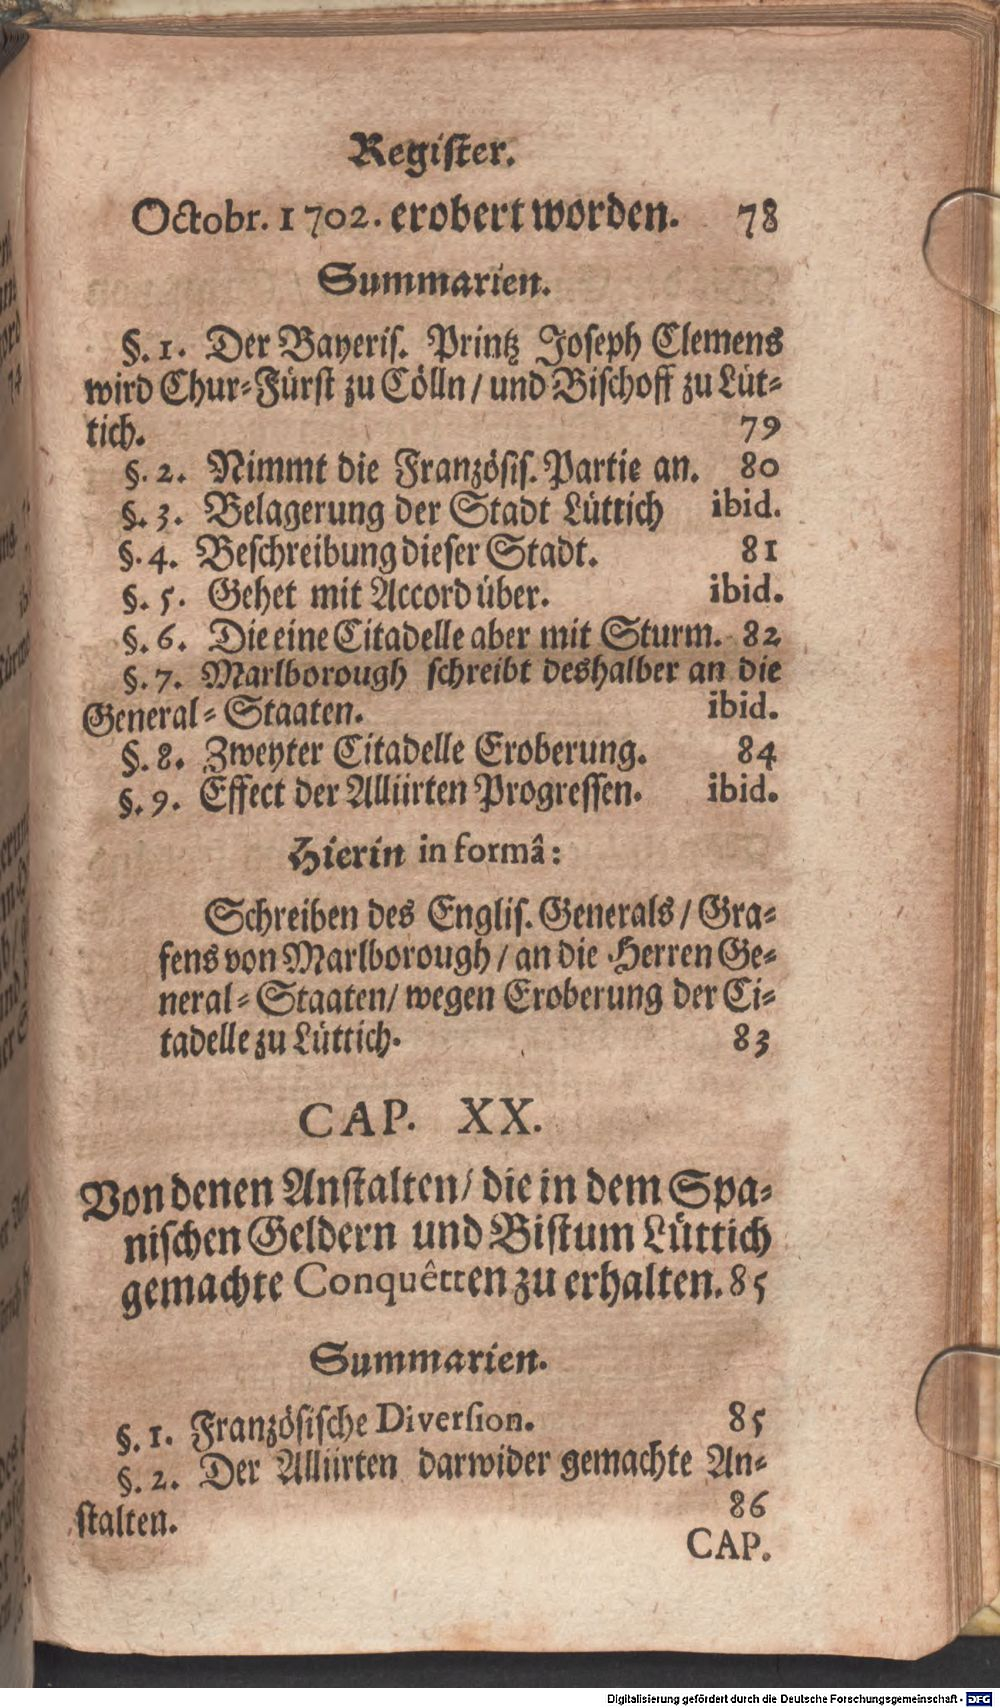 Register.
Octobr. 1702. erobert worden. 78
Summarien.
§. 1. Der Bayeris. Printz Joseph Clemens
wird Chur-Fürst zu Cölln / und Bischoff zu Lüt-
tich. 79
§. 2. Nimmt die Französis. Partie an. 80
§. 3. Belagerung der Stadt Lüttich ibid.
§. 4. Beschreibung dieser Stadt. 81
§. 5. Gehet mit Accord über. ibid.
§. 6. Die eine Citadelle aber mit Sturm. 82
§. 7. Marlborough schreibt deshalber an die
General-Staaten. ibid.
§. 8. Zweyter Citadelle Eroberung. 84
§. 9. Effect der Alliirten Progressen. ibid.
Hierin in formâ:
Schreiben des Englis. Generals / Gra-
fens von Marlborough / an die Herren Ge-
neral-Staaten / wegen Eroberung der Ci-
tadelle zu Lüttich. 83
CAP. XX.
Von denen Anstalten / die in dem Spa-
nischen Geldern und Bistum Lüttich
gemachte Conquêtten zu erhalten. 85
Summarien.
§. 1. Französische Diversion. 85
§. 2. Der Alliirten darwider gemachte An-
stalten. 86
CAP.
Digitalisierung gefördert durch die Deutsche Forschungsgemeinschaft - DFG